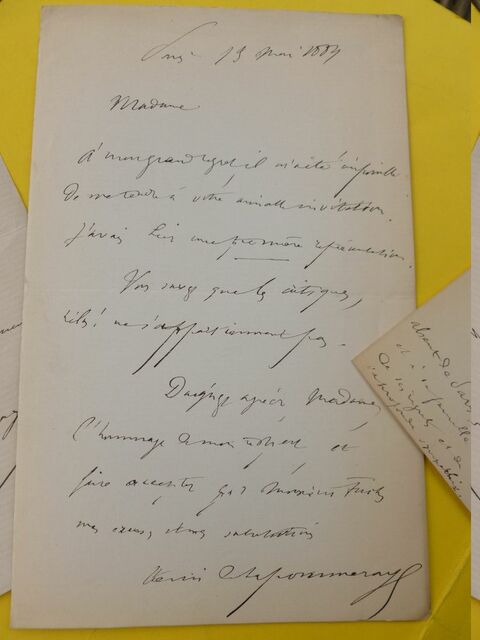 13 Mai 1884
Madame
À mon grand regret il m'a été impossible
de me rendre à votre aimable invitation.
J'avais hier une première représentation.
Vous savez que les critiques,
hélas! ne s'appartiennent pas.
Daignez agréer Madame,
l'hommage de mon respect et
faire accepter par Monsieur
mes excuses et mes salutations
Henri de Lapommeraye
et à sa famille
de ses regrets et de